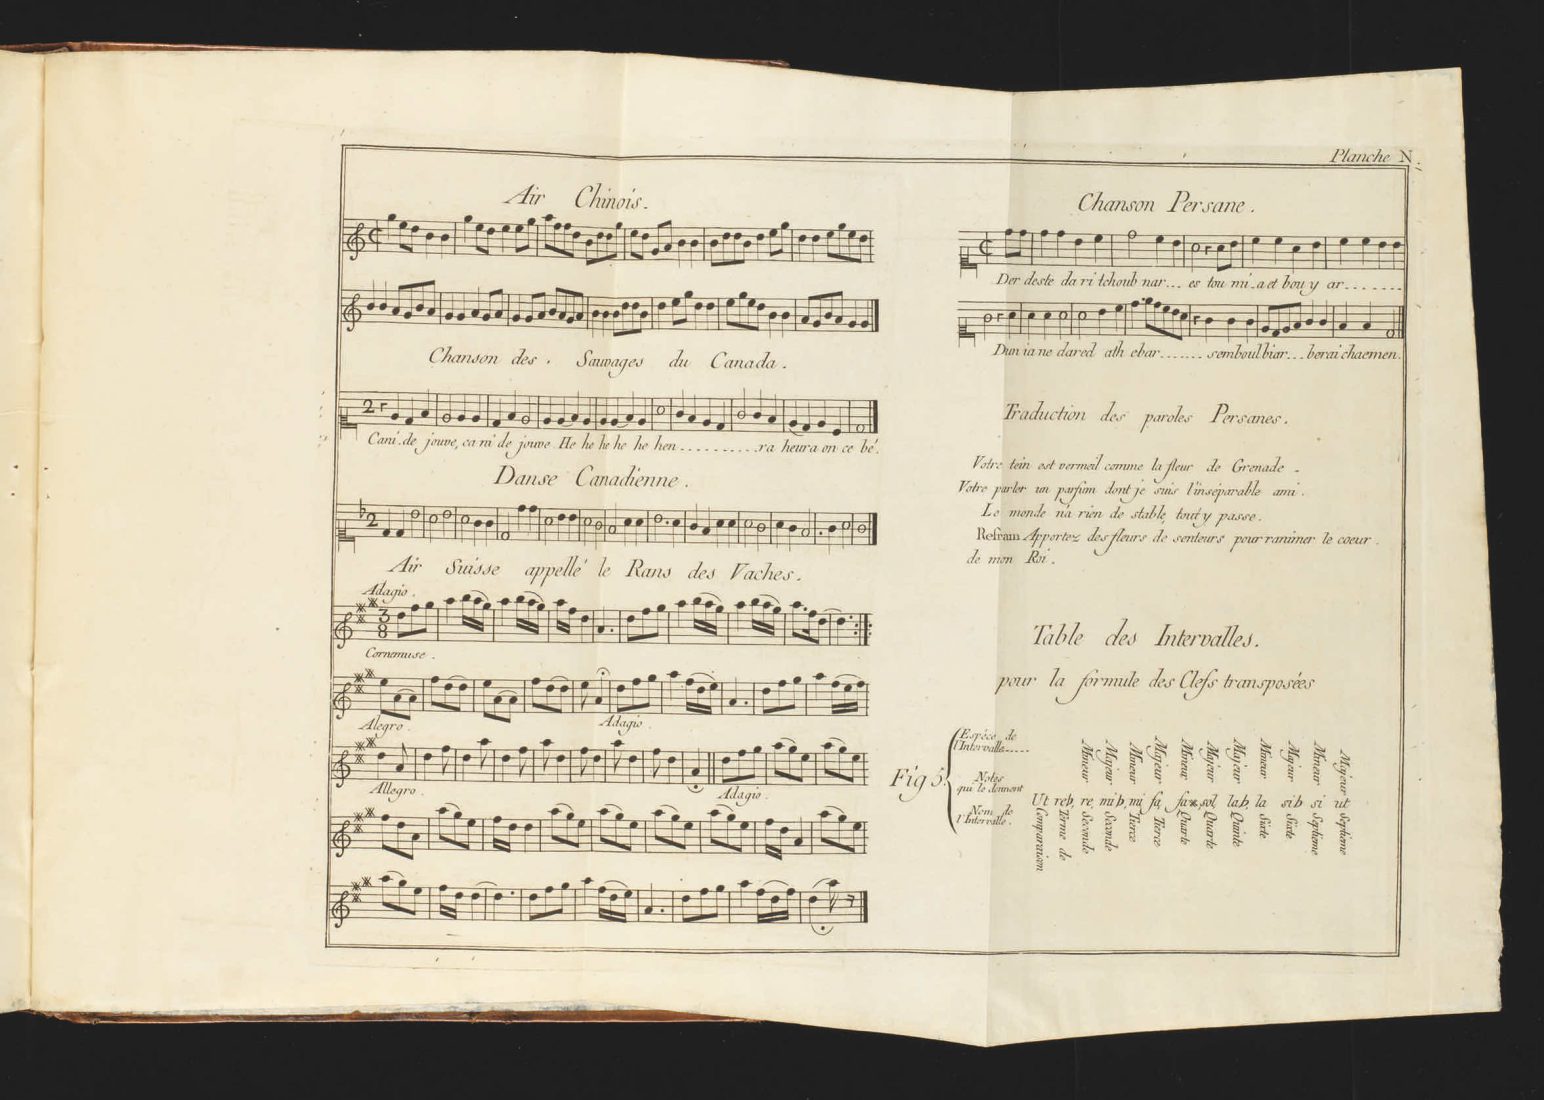 Planche N.
Air Chinois.
Chanson des Sauvages du Canada.
Cani de jouve, ca ni de jouve. He he he he he hen .......... ra heura on ce bé.
Danse Canadienne.
Air Suisse appellé le Rans des Vaches.
Adagio.
Cornemuse.
Alegro. Adagio.
Allegro. Adagio.
Chanson Persane.
Der deste da ri tchoub nar... es tou mi.a et bou y ar.......
Dun ia ne dared ath ebar....... somboul biar... berai chaemen.
Traduction des paroles Persanes.
Votre tein est vermeil comme la fleur de Grenade.
Votre parler un parfum dont je suis l'inséparable ami.
Le monde n'a rien de stable, tout y passe.
Refrain Apportez des fleurs de senteurs pour ranimer le coeur.
de mon Roi.
Table des Intervalles.
pour la formule des Clefs transposées
Fig 5.
Espéce de
l'Intervalle.....
Mineur Majeur Mineur Majeur Mineur Majeur Majeur Mineur Majeur Mineur Majeur
Notes
qui le donnent
Ut re b, re, mi b, mi fa, fa ⨳, sol, la b, la si b si ut
Nom de
l'Intervalle.
Terme de Comparaison
Seconde Seconde Tierce Tierce Quarte Quarte Quinte Sixte Sixte Septieme Septieme